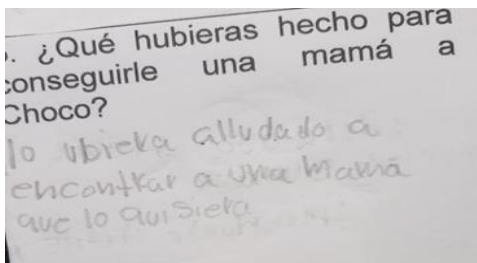 . ¿Qué hubieras hecho para
conseguirle una mamá a
Choco?
lo ubiera alludado a
encontrar a una mamá
que lo quisiera